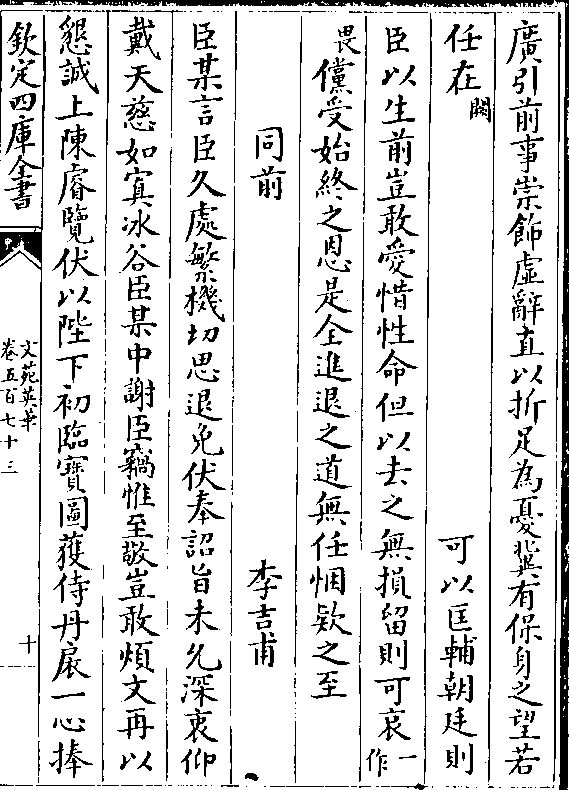 廣引前事崇飾虛辭直以折足為憂冀有保身之望若
任在闕　可以匡輔朝廷則
臣以生前豈敢愛惜性命但以去之無損留則可哀一作
畏儻受始終之恩是全進退之道無任悃欵之至
同前　李吉甫
臣某言臣久處繁機切思退免伏奉詔旨未允深衷仰
戴天慈如寘冰谷臣某中謝臣竊惟至敬豈敢煩文再以
懇誠上陳睿覽伏以陛下初臨寶圖獲侍丹扆一心捧
欽定四庫全書
文苑英華
卷五百七十三
十